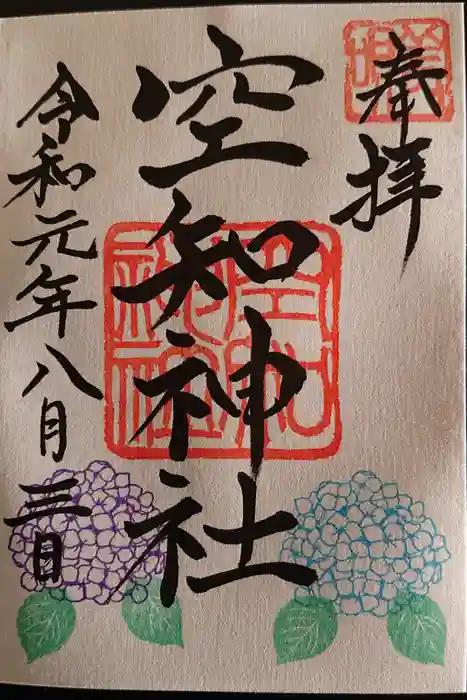 奉拝
空知神社
空知神社
令和元年八月三日